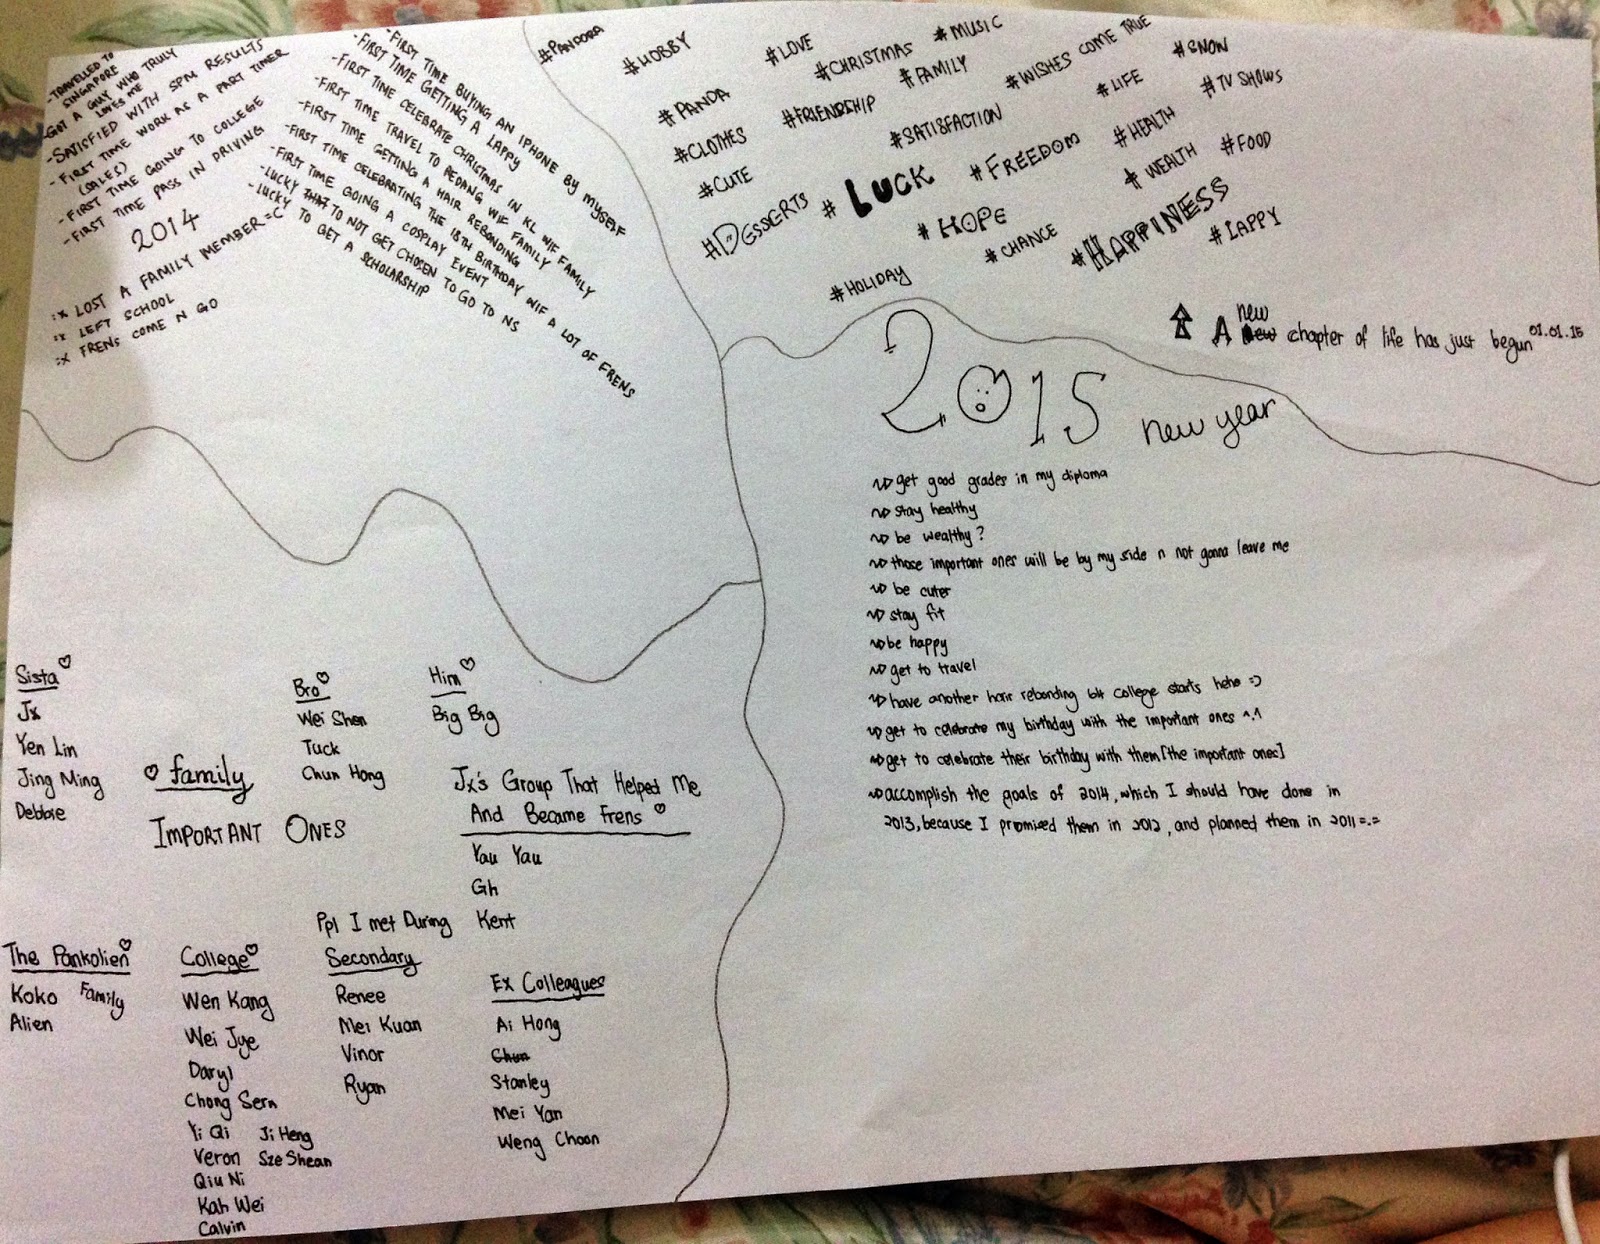 - TRAVELLED TO
SINGAPORE
- GOT A GUY WHO TRULY
LOVES ME
- SATISFIED WITH SPM RESULTS
- FIRST TIME WORK AS A PART TIMER
(SALES)
- FIRST TIME GOING TO COLLEGE
- FIRST TIME PASS IN DRIVING
2014
:x LOST A FAMILY MEMBER =C
:x LEFT SCHOOL
:x FRENS COME N GO
- FIRST TIME BUYING AN IPHONE BY MYSELF
- FIRST TIME GETTING A LAPPY
- FIRST TIME CELEBRATE CHRISTMAS IN KL WIF FAMILY
- FIRST TIME TRAVEL TO REDANG WIF FAMILY
- FIRST TIME GETTING A HAIR REBONDING
- FIRST TIME CELEBRATING THE 18TH BIRTHDAY WIF A LOT OF FRENS
- FIRST TIME GOING A COSPLAY EVENT
- LUCKY THAT TO NOT GET CHOSEN TO GO TO NS
- LUCKY TO GET A SCHOLARSHIP
#PANDORA
#HOBBY
#LOVE
#MUSIC
#CHRISTMAS
#SNOW
#FAMILY
#WISHES COME TRUE
#PANDA
#FRIENDSHIP
#LIFE
#TV SHOWS
#CLOTHES
#SATISFACTION
#HEALTH
#CUTE
#LUCK
#FREEDOM
#WEALTH
#FOOD
#DESSERTS
#HOPE
#CHANCE
#HAPPINESS
#LAPPY
#HOLIDAY
A new chapter of life has just begun 01.01.15
2015 new year
get good grades in my diploma
stay healthy
be wealthy?
those important ones will be by my side n not gonna leave me
be cuter
stay fit
be happy
get to travel
have another hair rebonding b4 college starts hehe =)
get to celebrate my birthday with the important ones ^.^
get to celebrate their birthday with them [the important ones]
accomplish the goals of 2014, which I should have done in
2013, because I promised them in 2012, and planned them in 2011 =.=
Sista
Jx
Yen Lin
Jing Ming
Debbie
family
IMPORTANT ONES
Bro
Wei Shen
Tuck
Chun Hong
Him
Big Big
Jx's Group That Helped Me
And Became Frens
Yau Yau
Gh
Kent
The Pankolien
Koko Family
Alien
College
Wen Kang
Wei Jye
Daryl
Chong Sern
Yi Qi Ji Heng
Veron Sze Shean
Qiu Ni
Kah Wei
Calvin
Ppl I met During
Secondary
Renee
Mei Kuan
Vinor
Ryan
Ex Colleagues
Ai Hong
Chun
Stanley
Mei Yan
Weng Choon